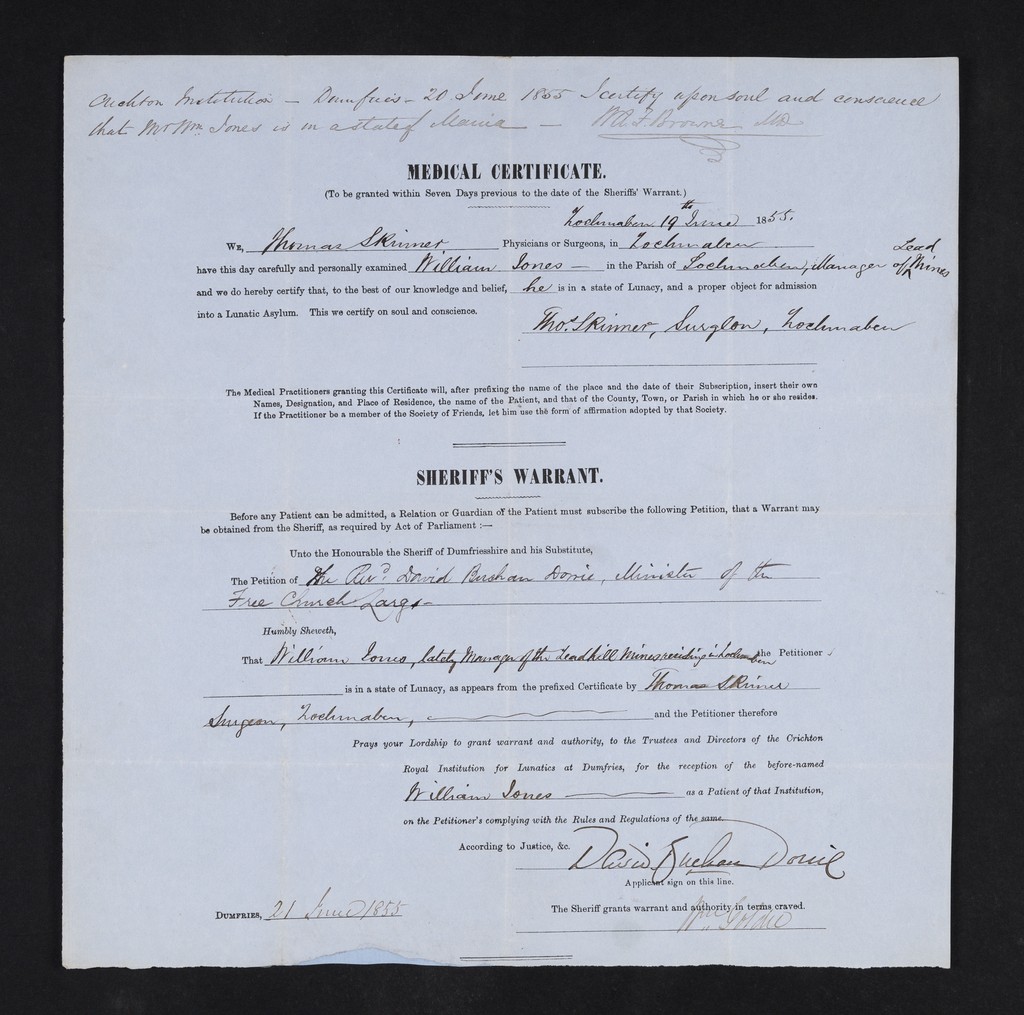 Crichton Institution – Dumfries – 20 June 1855 I certify upon soul and conscience
that Mr Wm. Jones is in a state of Mania – W A F Browne MD
MEDICAL CERTIFICATE.
(To be granted within Seven Days previous to the date of the Sheriffs' Warrant.)
Lochmaben 19th June 1855.
WE, Thomas Skinner Physicians or Surgeons, in Lochmaben
have this day carefully and personally examined William Jones – in the Parish of Lochmaben, Manager of Lead Mines
and we do hereby certify that, to the best of our knowledge and belief, he is in a state of Lunacy, and a proper object for admission
into a Lunatic Asylum. This we certify on soul and conscience.
Thos. Skinner, Surgeon, Lochmaben
The Medical Practitioners granting this Certificate will, after prefixing the name of the place and the date of their Subscription, insert their own
Names, Designation, and Place of Residence, the name of the Patient, and that of the County, Town, or Parish in which he or she resides.
If the Practitioner be a member of the Society of Friends, let him use the form of affirmation adopted by that Society.
SHERIFF'S WARRANT.
Before any Patient can be admitted, a Relation or Guardian of the Patient must subscribe the following Petition, that a Warrant may
be obtained from the Sheriff, as required by Act of Parliament :—
Unto the Honourable the Sheriff of Dumfriesshire and his Substitute,
The Petition of the Revd. David Buchan Dorie, Minister of the
Free Church Largo –
Humbly Sheweth,
That William Jones, lately Manager of the Leadhill Mines residing in Lochmaben the Petitioner
is in a state of Lunacy, as appears from the prefixed Certificate by Thomas Skinner
Surgeon, Lochmaben, and the Petitioner therefore
Prays your Lordship to grant warrant and authority, to the Trustees and Directors of the Crichton
Royal Institution for Lunatics at Dumfries, for the reception of the before-named
William Jones as a Patient of that Institution,
on the Petitioner's complying with the Rules and Regulations of the same.
According to Justice, &c. David Buchan Dorie
Applicant sign on this line.
DUMFRIES, 21 June 1855 The Sheriff grants warrant and authority in terms craved.
Wm Goldie